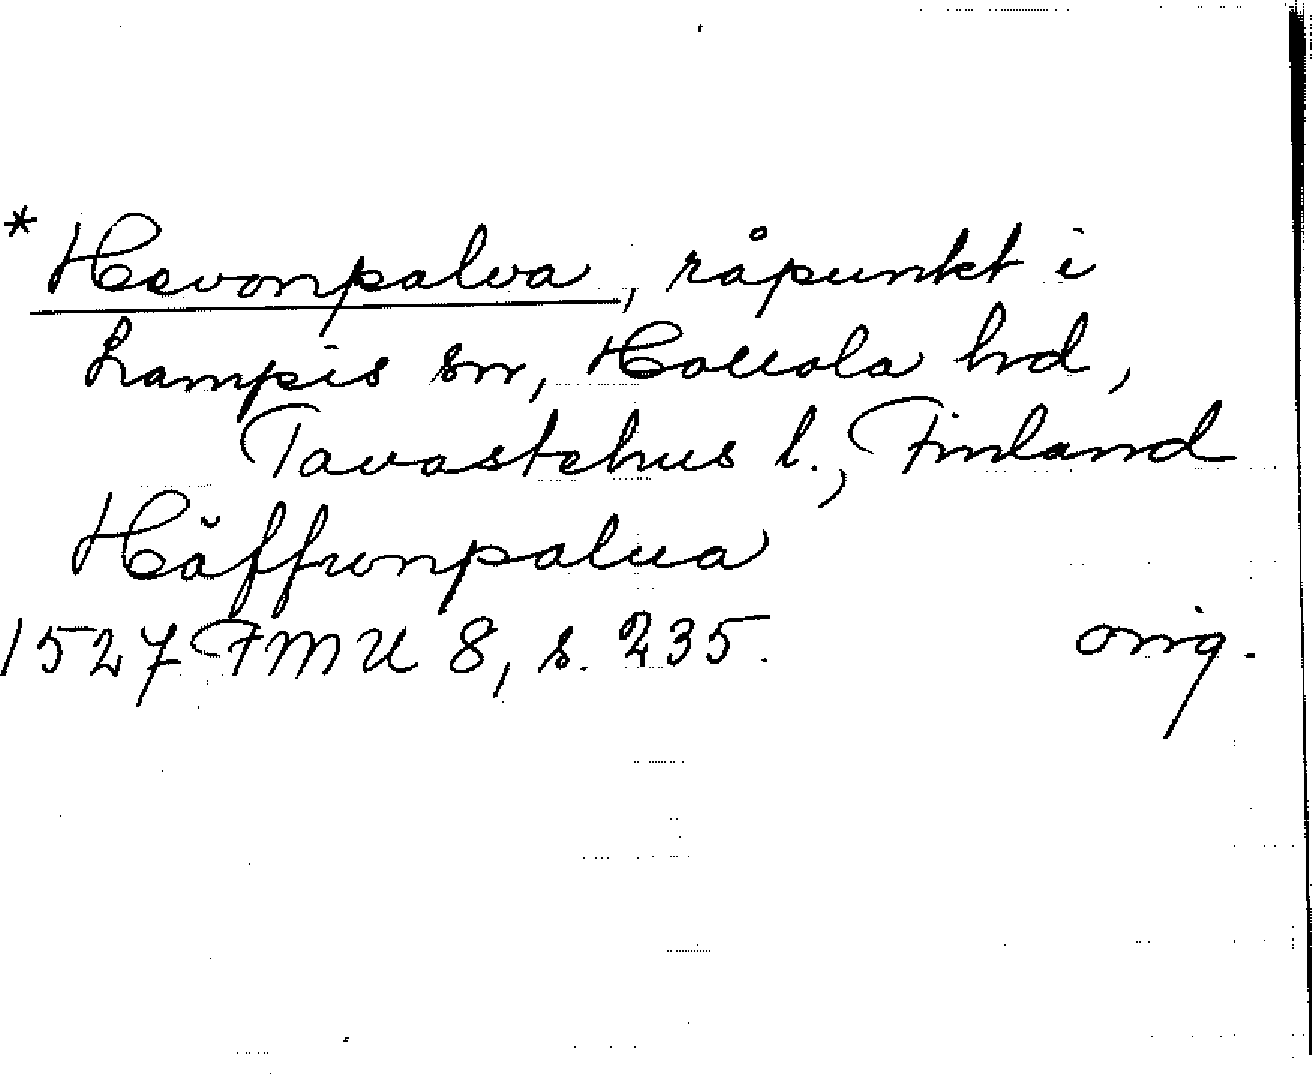 * Hevonpalva, råpunkt i
Lampis sn, Hollola hd,
Tavastehus l., Finland
Häffwonpalua
1527 FMU 8, s. 235. orig.